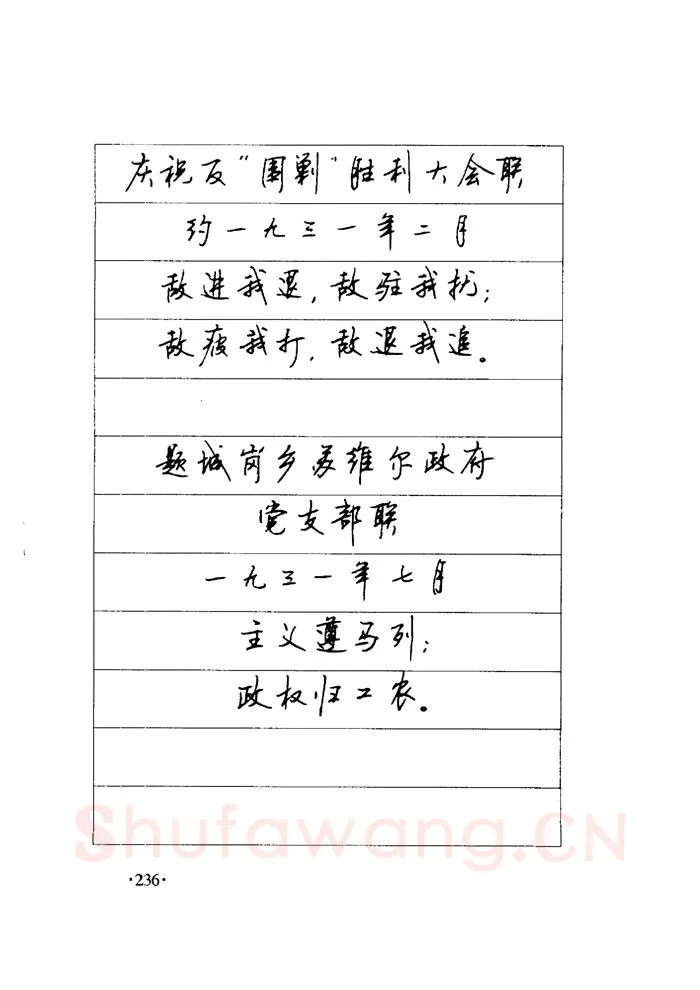 庆祝反“围剿”胜利大会联
约一九三一年二月
敌进我退，敌驻我扰；
敌疲我打，敌退我追。
题城岗乡苏维尔政府
党支部联
一九三一年七月
主义遵马列；
政权归工农。
Shufawang.CN
·236·